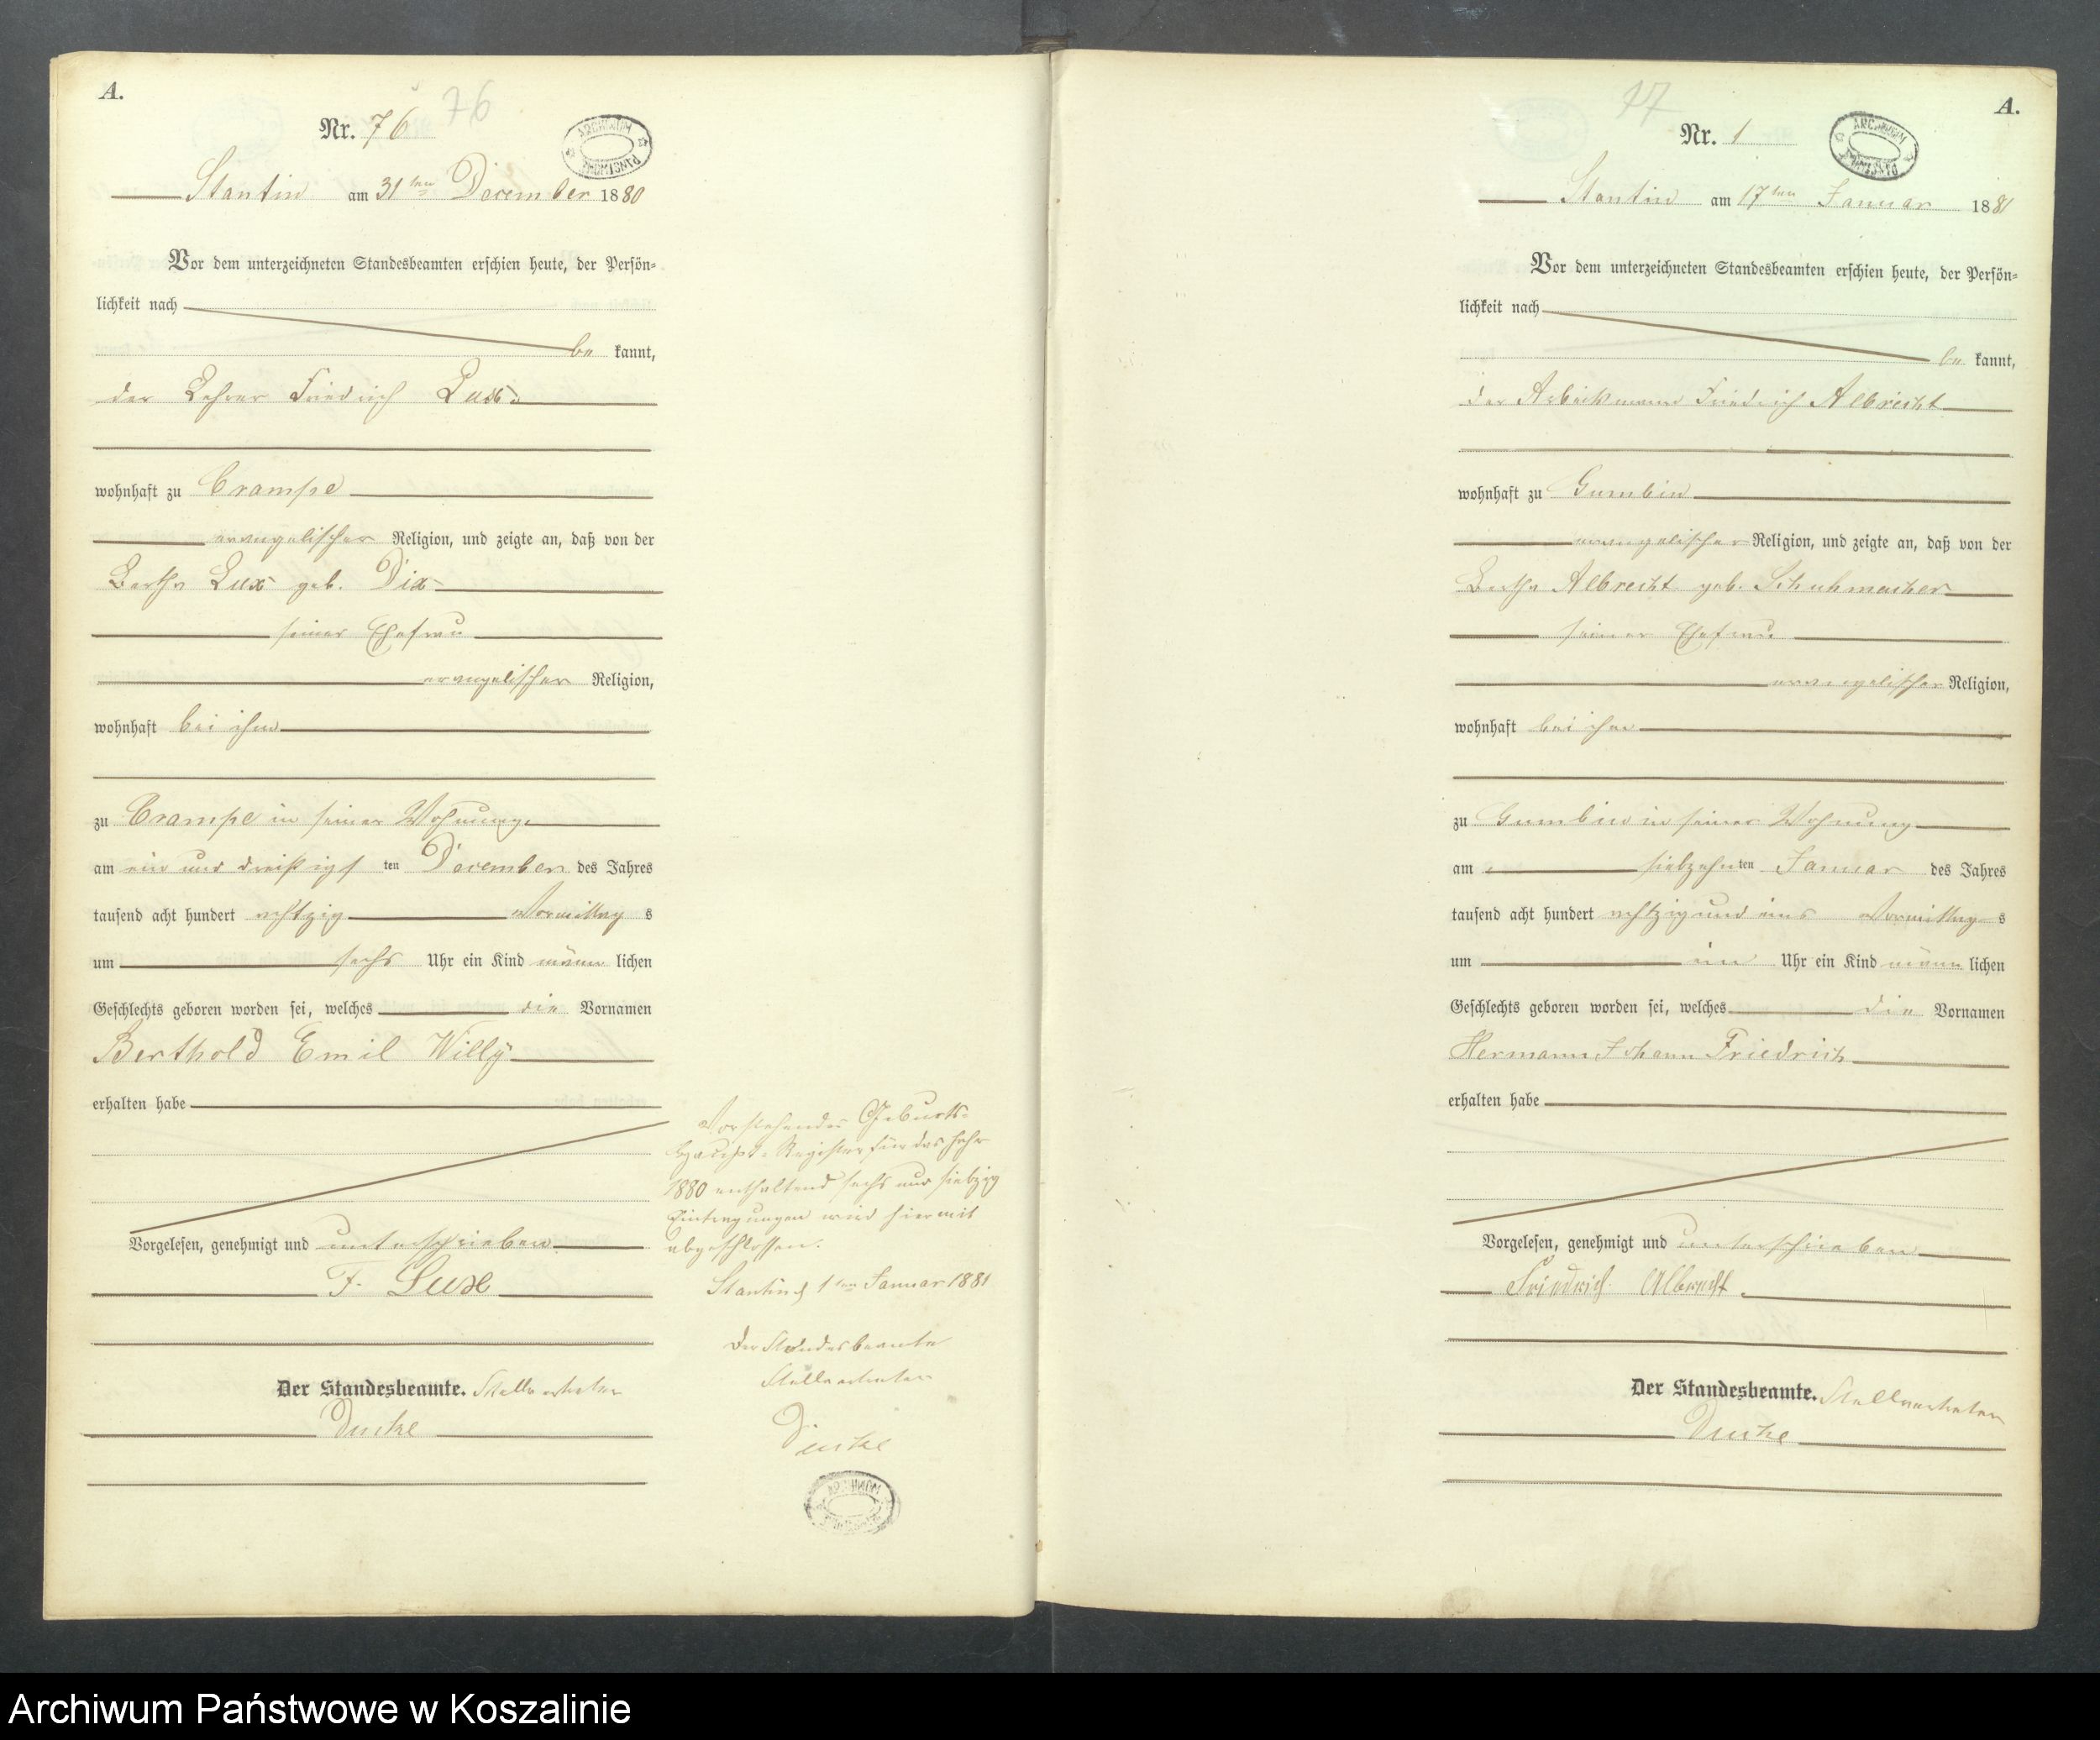 A.
76
Nr. 76
ARCHIWUM PAŃSTWOWE
Stantin am 31ten December 1880
Vor dem unterzeichneten Standesbeamten erschien heute, der Persön=
lichkeit nach
be kannt,
der Lehrer Friedrich Lux
wohnhaft zu Crampe
evangelischer Religion, und zeigte an, daß von der
Bertha Lux geb. Dix
seiner Ehefrau
evangelischer Religion,
wohnhaft bei ihm
zu Crampe in seiner Wohnung
am ein und dreißigs ten December des Jahres
tausend acht hundert achtzig Vormittag s
um sechs Uhr ein Kind männ lichen
Geschlechts geboren worden sei, welches die Vornamen
Berthold Emil Willÿ
erhalten habe
Vorgelesen, genehmigt und unterschrieben
F. Lux
Der Standesbeamte. Stellvertreter
Vorstehendes Geburts=
Haupt=Register für das Jahr
1880 enthaltend sechs und siebzig
Eintragungen wird hiermit
abgeschlossen.
Stantin d 1ten Januar 1881
Der Standesbeamte
Stellvertreter
ARCHIWUM
17
A.
Nr. 1
ARCHIWUM PAŃSTWOWE
Stantin am 17ten Januar 1881
Vor dem unterzeichneten Standesbeamten erschien heute, der Persön=
lichkeit nach
be kannt,
der Arbeitsmann Friedrich Albrecht
wohnhaft zu Gumbin
evangelischer Religion, und zeigte an, daß von der
Bertha Albrecht geb. Schuhmacher
seiner Ehefrau
evangelischer Religion,
wohnhaft bei ihm
zu Gumbin in seiner Wohnung
am siebzehn ten Januar des Jahres
tausend acht hundert achtzig und eins Vormittag s
um ein Uhr ein Kind männ lichen
Geschlechts geboren worden sei, welches die Vornamen
Hermann Johann Friedrich
erhalten habe
Vorgelesen, genehmigt und unterschrieben
Friedrich Albrecht.
Der Standesbeamte. Stellvertreter
Archiwum Państwowe w Koszalinie